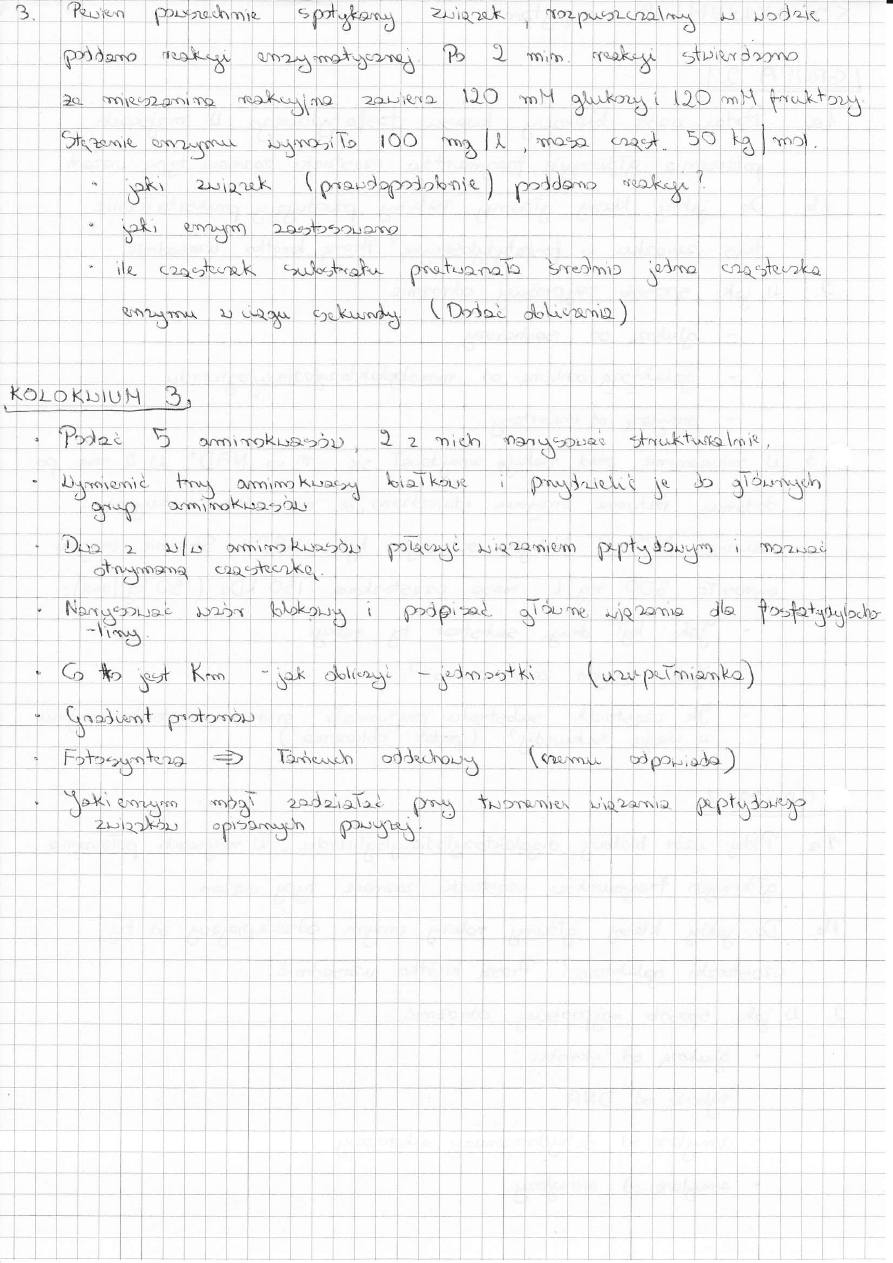 3. Pewien powszechnie spotykany związek, rozpuszczalny w wodzie
poddano reakcji enzymatycznej. Po 2 min. reakcji stwierdzono
że mieszanina reakcyjna zawiera 120 mM glukozy i 120 mM fruktozy.
Stężenie enzymu wynosiło 100 mg/l, masa cząst. 50 kg/mol.
· jaki związek (prawdopodobnie) poddano reakcji?
· jaki enzym zastosowano
· ile cząsteczek substratu przetwarzała średnio jedna cząsteczka
enzymu w ciągu sekundy. (Dodać obliczenia)
KOLOKWIUM 3.
· Podać 5 aminokwasów, 2 z nich narysować strukturalnie.
· Wymienić trzy aminokwasy białkowe i przydzielić je do głównych
grup aminokwasów
· Dwa z w/w aminokwasów połączyć wiązaniem peptydowym i nazwać
otrzymaną cząsteczkę.
· Narysować wzór blokowy i podpisać główne wiązania dla fosfatydylocho-
-liny.
· Co to jest Km - jak obliczyć - jednostki (uzupełnianka)
· Gradient protonów
· Fotosynteza ⇒ Łańcuch oddechowy (czemu odpowiada)
· Jaki enzym mógł zadziałać przy tworzeniu wiązania peptydowego
związków opisanych powyżej.